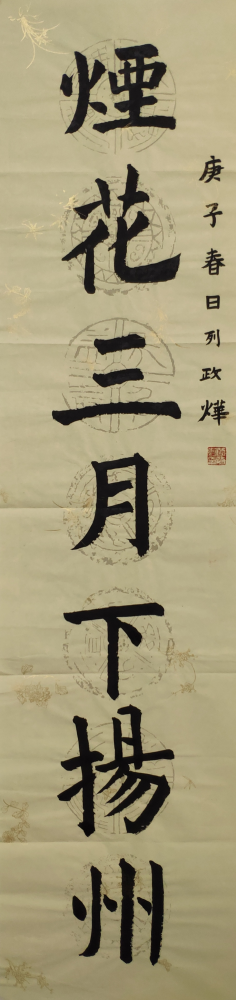 煙花三月下揚州
庚子春日列政燁